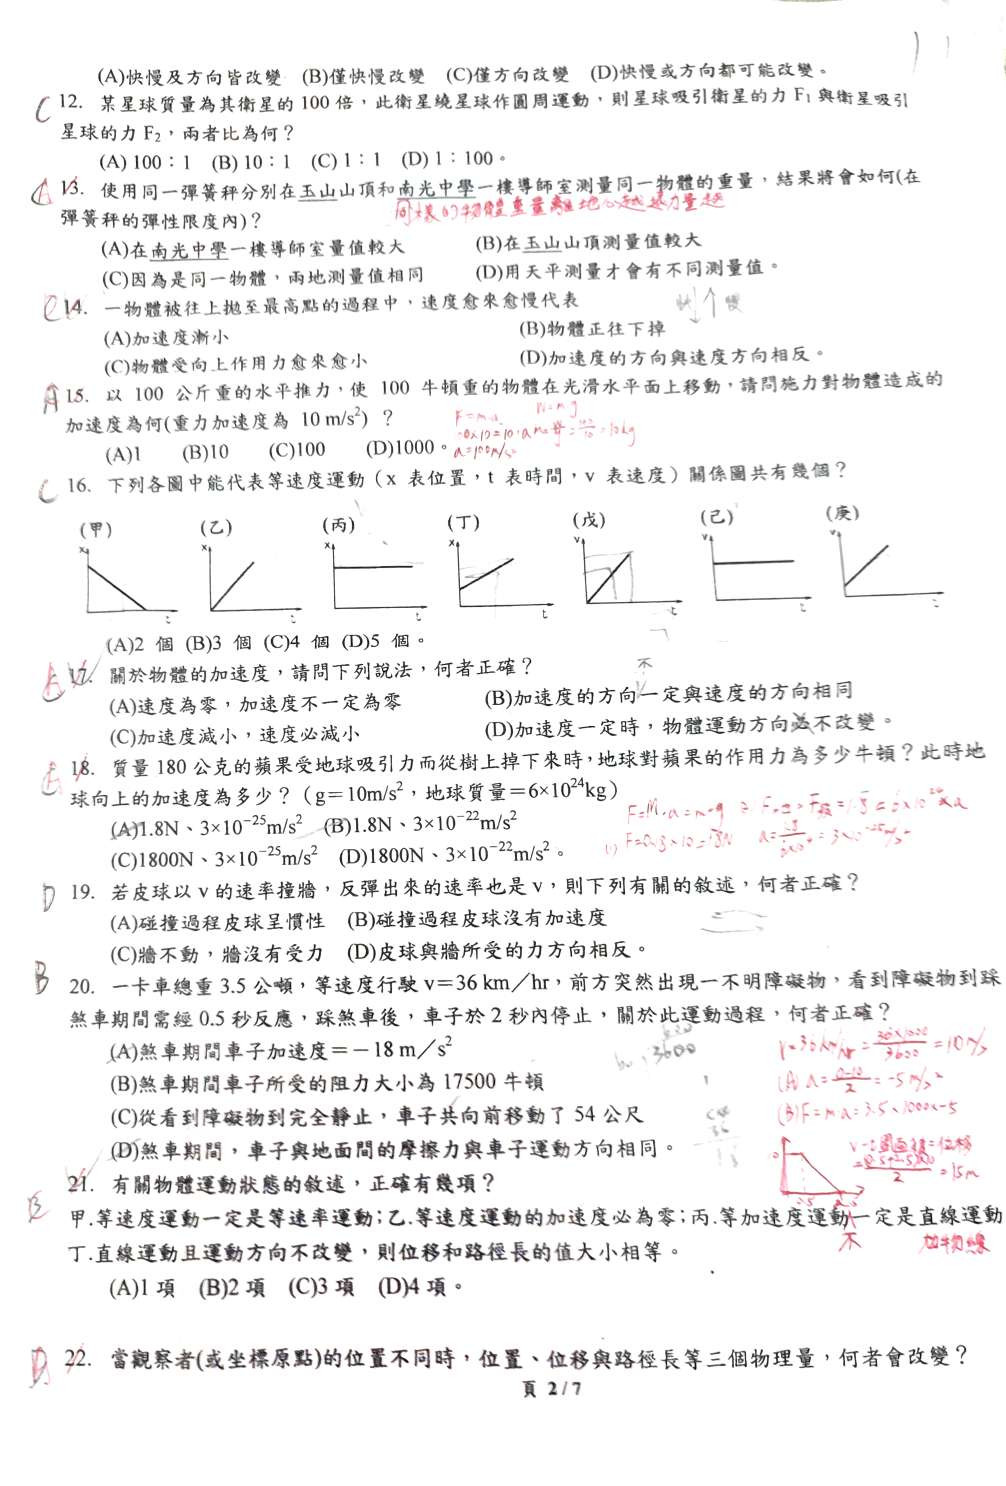 (A)快慢及方向皆改變 (B)僅快慢改變 (C)僅方向改變 (D)快慢或方向都可能改變。
C 12. 某星球質量為其衛星的 100 倍，此衛星繞星球作圓周運動，則星球吸引衛星的力 F₁ 與衛星吸引
星球的力 F₂，兩者比為何？
(A) 100：1 (B) 10：1 (C) 1：1 (D) 1：100。
A 13. 使用同一彈簧秤分別在玉山山頂和南光中學一樓導師室測量同一物體的重量，結果將會如何(在
彈簧秤的彈性限度內)？
同樣的物體重量離地心越遠力量越
(A)在南光中學一樓導師室量值較大 (B)在玉山山頂測量值較大
(C)因為是同一物體，兩地測量值相同 (D)用天平測量才會有不同測量值。
14. 一物體被往上拋至最高點的過程中，速度愈來愈慢代表
(A)加速度漸小 (B)物體正往下掉
(C)物體受向上作用力愈來愈小 (D)加速度的方向與速度方向相反。
A 15. 以 100 公斤重的水平推力，使 100 牛頓重的物體在光滑水平面上移動，請問施力對物體造成的
加速度為何(重力加速度為 10 m/s²) ？
F=ma W=mg
(A)1 (B)10 (C)100 (D)1000。
C 16. 下列各圖中能代表等速度運動（x 表位置，t 表時間，v 表速度）關係圖共有幾個？
(甲) (乙) (丙) (丁) (戊) (己) (庚)
x x x x v v v
t t t t t t t
(A)2 個 (B)3 個 (C)4 個 (D)5 個。
17. 關於物體的加速度，請問下列說法，何者正確？
不
(A)速度為零，加速度不一定為零 (B)加速度的方向一定與速度的方向相同
(C)加速度減小，速度必減小 (D)加速度一定時，物體運動方向必不改變。
18. 質量 180 公克的蘋果受地球吸引力而從樹上掉下來時，地球對蘋果的作用力為多少牛頓？此時地
球向上的加速度為多少？（g＝10m/s²，地球質量＝6×10²⁴kg）
(A)1.8N、3×10⁻²⁵m/s² (B)1.8N、3×10⁻²²m/s²
(C)1800N、3×10⁻²⁵m/s² (D)1800N、3×10⁻²²m/s²。
D 19. 若皮球以 v 的速率撞牆，反彈出來的速率也是 v，則下列有關的敘述，何者正確？
(A)碰撞過程皮球呈慣性 (B)碰撞過程皮球沒有加速度
(C)牆不動，牆沒有受力 (D)皮球與牆所受的力方向相反。
B 20. 一卡車總重 3.5 公噸，等速度行駛 v＝36 km／hr，前方突然出現一不明障礙物，看到障礙物到踩
煞車期間需經 0.5 秒反應，踩煞車後，車子於 2 秒內停止，關於此運動過程，何者正確？
(A)煞車期間車子加速度＝－18 m／s²
v=36km/hr = 36×1000/3600 = 10m/s
(B)煞車期間車子所受的阻力大小為 17500 牛頓
(A) a = 0-10/2 = -5m/s²
(C)從看到障礙物到完全靜止，車子共向前移動了 54 公尺
(B)F=ma=3.5×1000×-5
(D)煞車期間，車子與地面間的摩擦力與車子運動方向相同。
=15m
B 21. 有關物體運動狀態的敘述，正確有幾項？
甲.等速度運動一定是等速率運動；乙.等速度運動的加速度必為零；丙.等加速度運動一定是直線運動
不
丁.直線運動且運動方向不改變，則位移和路徑長的值大小相等。
(A)1 項 (B)2 項 (C)3 項 (D)4 項。
22. 當觀察者(或坐標原點)的位置不同時，位置、位移與路徑長等三個物理量，何者會改變？
頁 2 / 7